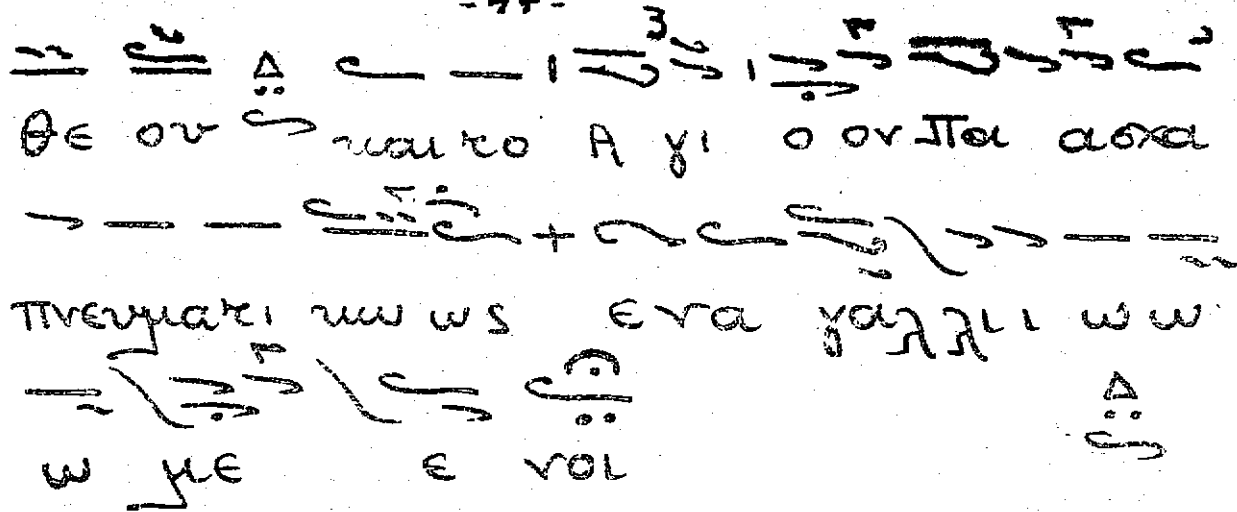 θε ου και το Α γι ο ον Πα ασχα
πνευματι κω ως ε να γαλλι ι ω ω
ω με ε νοι